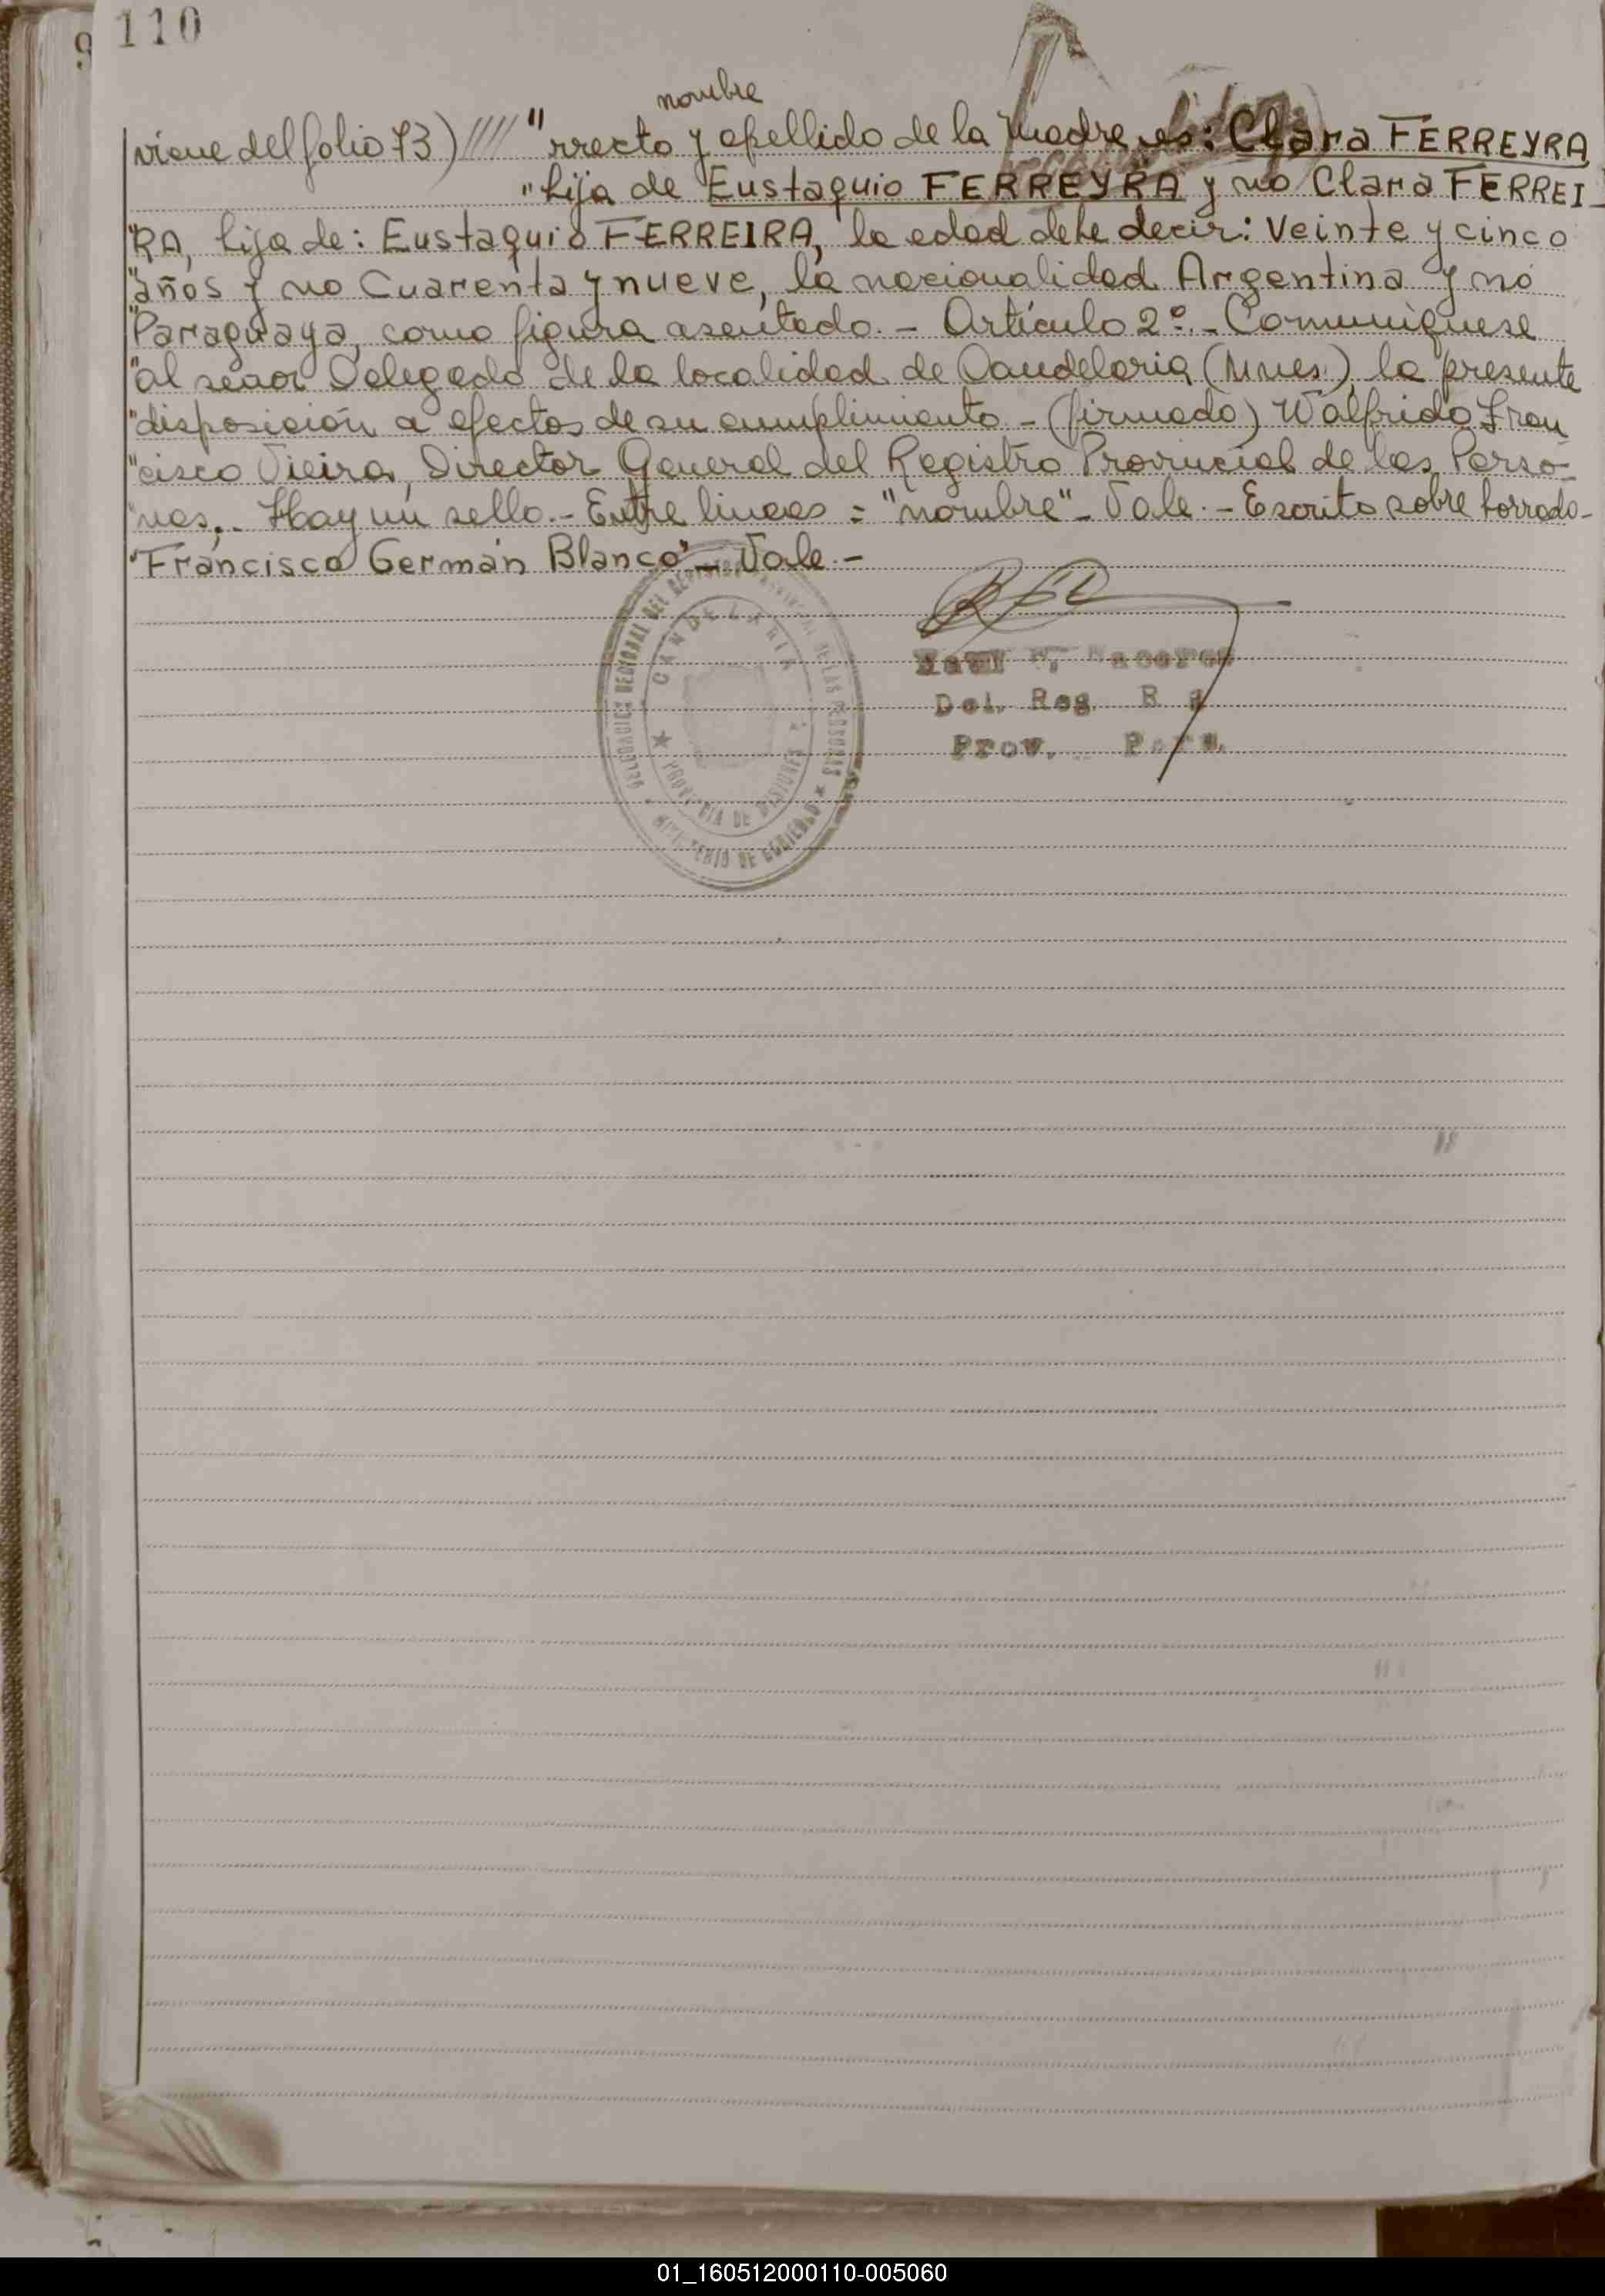 110
nombre
viene del folio 73) //// "rrecto y apellido de la madre es: Clara FERREYRA
"hija de Eustaquio FERREYRA y no Clara FERREI-
"RA, hija de: Eustaquio FERREIRA, la edad debe decir: Veinte y cinco
"años y no Cuarenta y nueve, la nacionalidad Argentina y no
"Paraguaya, como figura asentado.- Artículo 2º.- Comuníquese
"al señor Delegado de la localidad de Candelaria (Mnes.), la presente
"disposición a efectos de su cumplimiento.- (firmado) Walfrido Fran
"cisco Vieira, Director General del Registro Provincial de las Perso-
"nas.. Hay un sello.- Entre lineas = "nombre"- Vale.- Escrito sobre borrado-
"Francisco Germán Blanco"- Vale.-
DELEGACION REGIONAL DEL REGISTRO PROVINCIAL DE LAS PERSONAS
CANDELARIA
PROVINCIA DE MISIONES
MINISTERIO DE GOBIERNO
Del. Reg.
Prov. Pers.
01_160512000110-005060